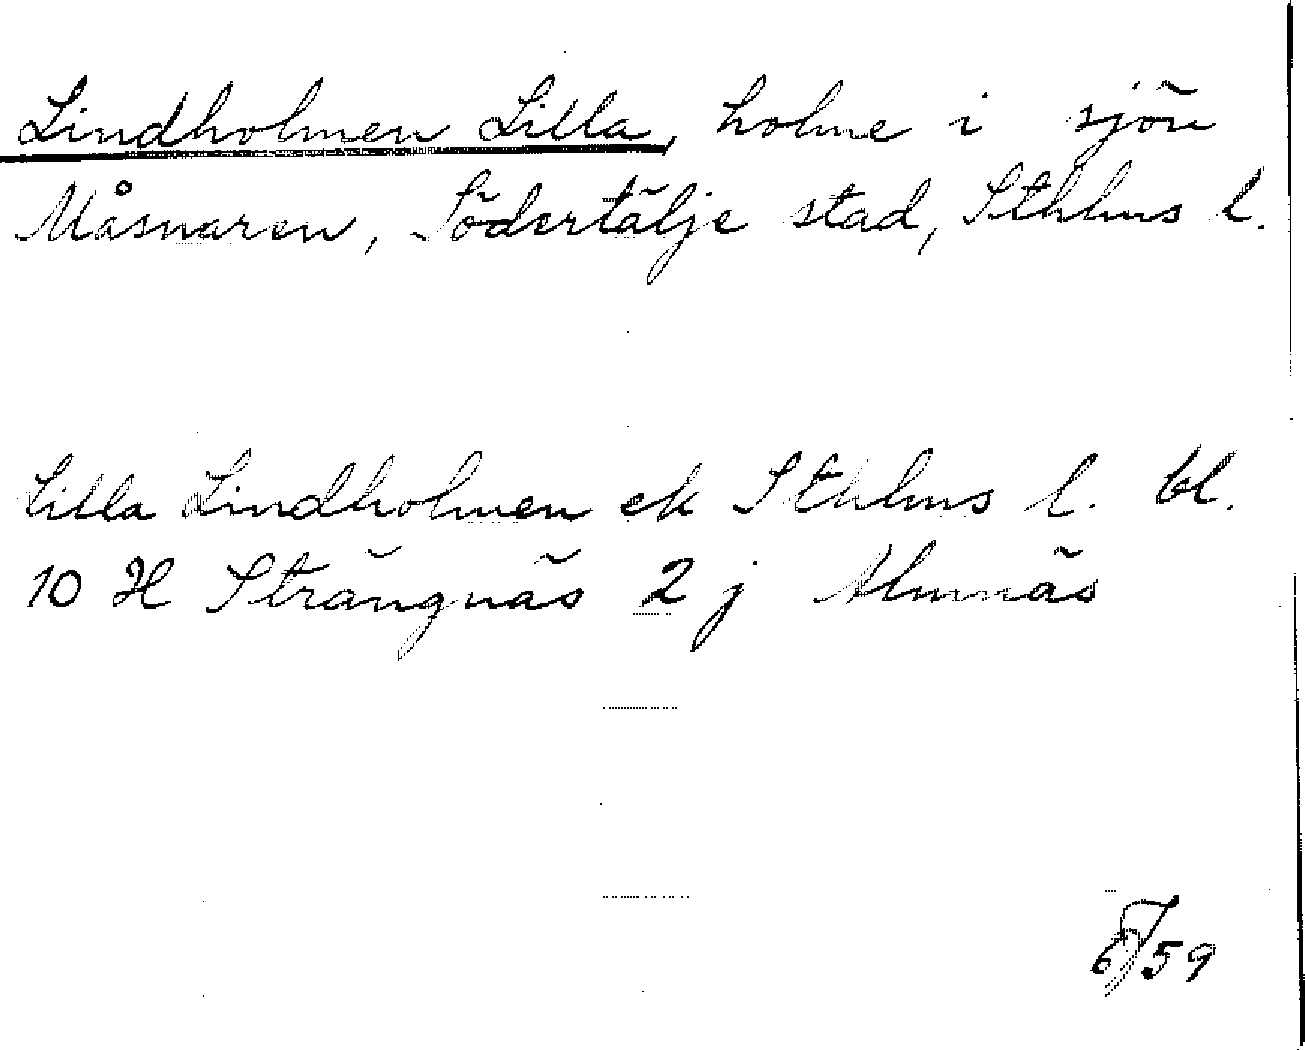 Lindholmen Lilla, holme i sjön
Måsnaren, Södertälje stad, Sthlms l.
Lilla Lindholmen ek Sthlms l. bl.
10 H Strängnäs 2 j Almnäs
59